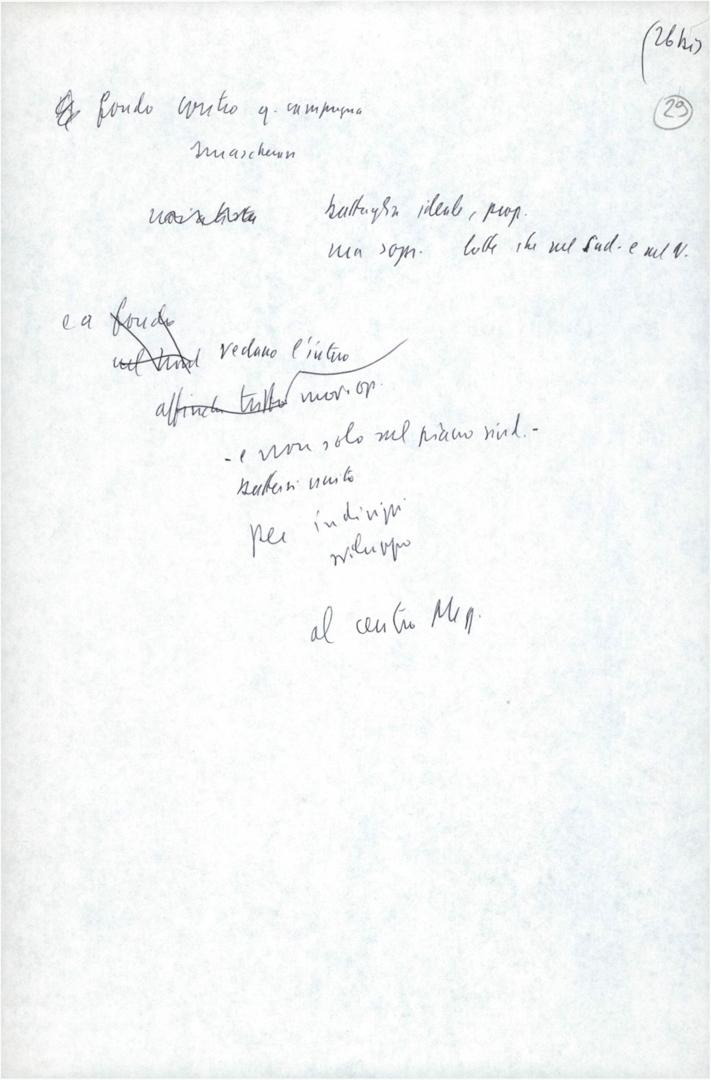 (26 bis)
29
fondo contro q. campagna
smascherar
battaglia ideale, prop.
ma sopr. lotte che nel Sud e nel N.
e a fondo
nel Nord vedano l'intero
affinché tutto mov. op.
- e non solo sul piano sind. -
battersi unito
per indirizzi
sviluppo
al centro Mezz.